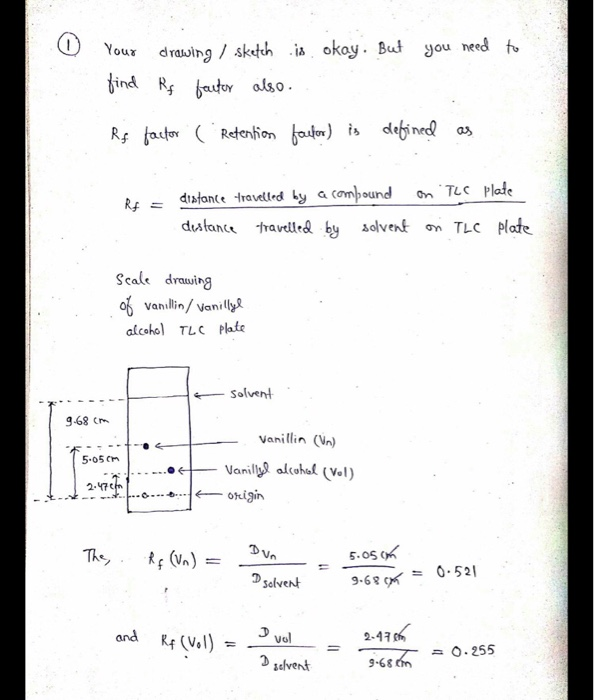 ① Your drawing / sketch is okay. But you need to
find Rf factor also.
Rf factor ( Retention factor) is defined as
Rf = distance travelled by a compound on TLC plate
distance travelled by solvent on TLC plate
Scale drawing
of vanillin/vanillyl
alcohol TLC plate
solvent
9.68 cm
Vanillin (Vn)
5.05 cm
Vanillyl alcohol (Vol)
2.47 cm
origin
The, Rf (Vn) = DVn / Dsolvent = 5.05 cm / 9.68 cm = 0.521
and Rf (Vol) = Dvol / Dsolvent = 2.47 cm / 9.68 cm = 0.255